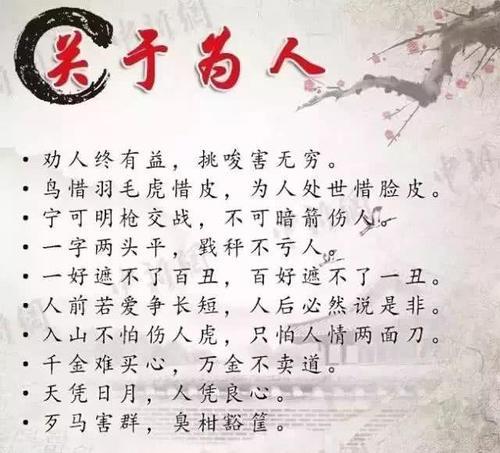 关于为人
· 劝人终有益，挑唆害无穷。
· 鸟惜羽毛虎惜皮，为人处世惜脸皮。
· 宁可明枪交战，不可暗箭伤人。
· 一字两头平，戥秤不亏人。
· 一好遮不了百丑，百好遮不了一丑。
· 人前若爱争长短，人后必然说是非。
· 入山不怕伤人虎，只怕人情两面刀。
· 千金难买心，万金不卖道。
· 天凭日月，人凭良心。
· 歹马害群，臭柑豁筐。